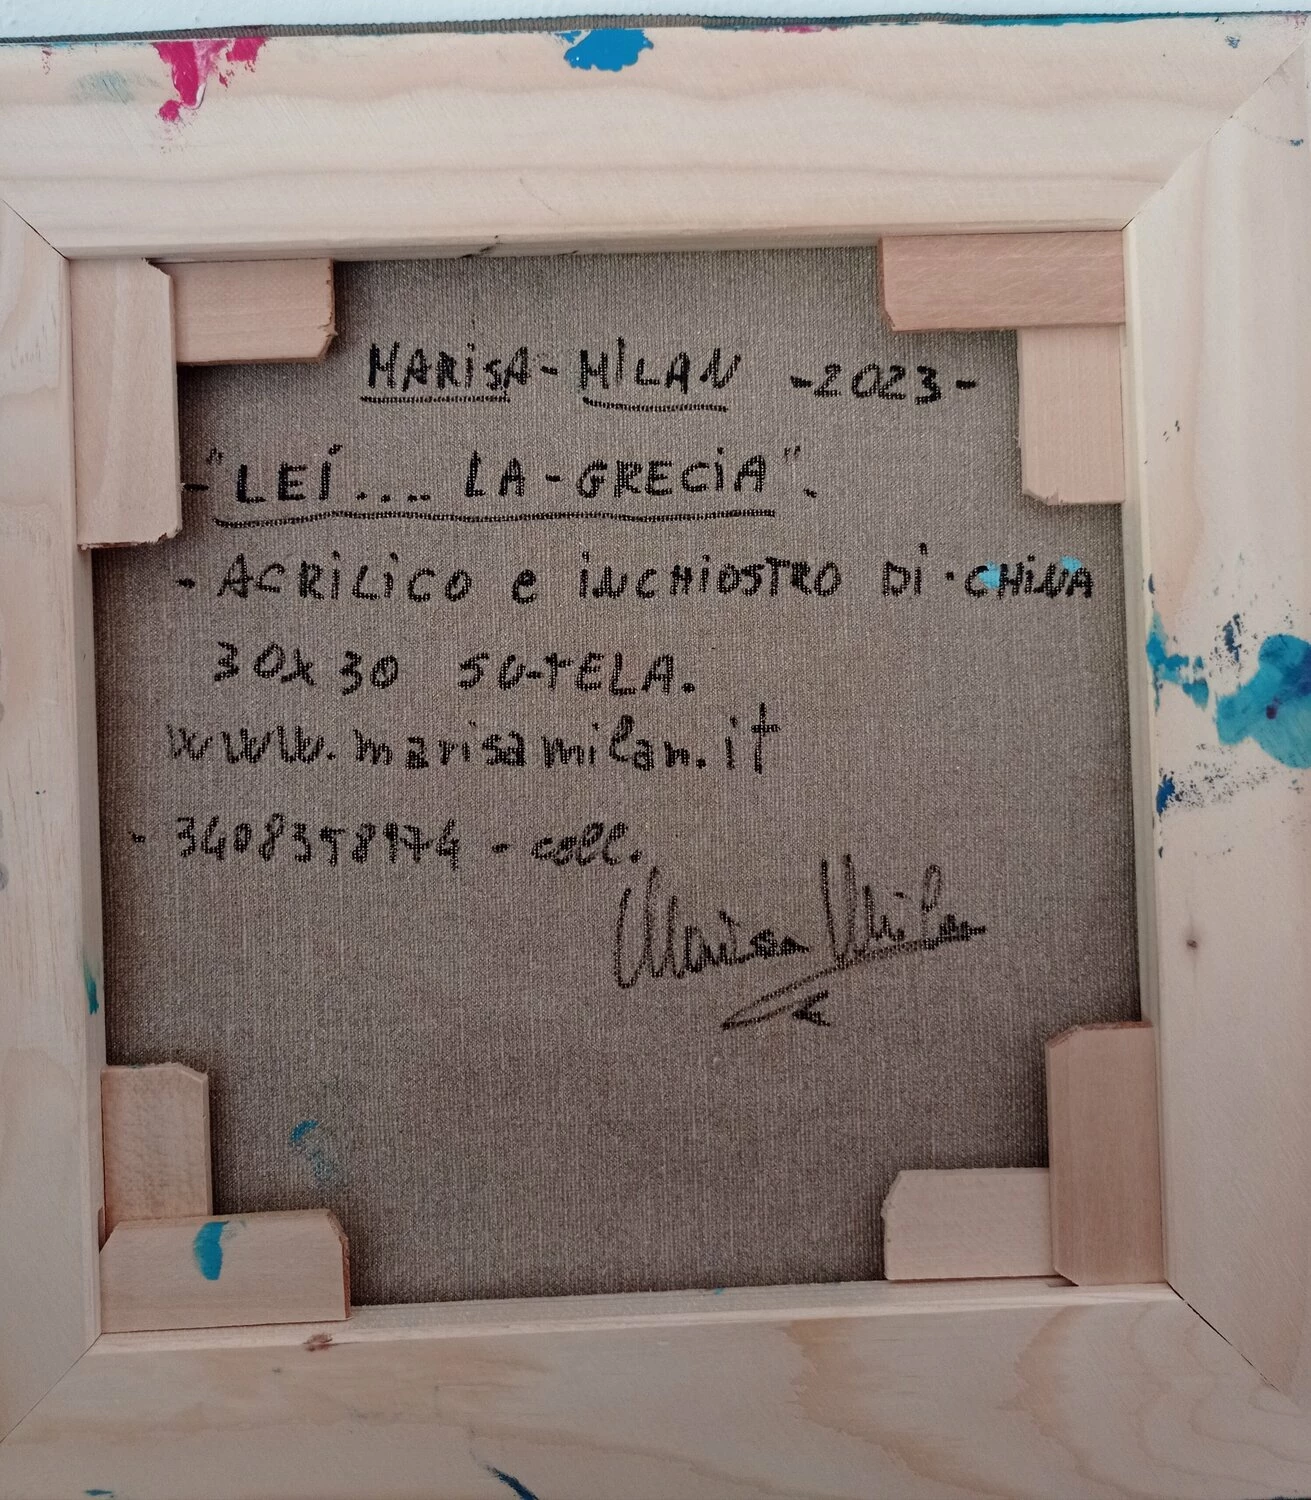 MARISA-MILAN -2023-
-"LEÍ.... LA-GRECIA".
- ACRILICO e INCHIOSTRO DI · CHINA
30X30 SU-TELA.
www.marisamilan.it
- cell.
Marisa Milan